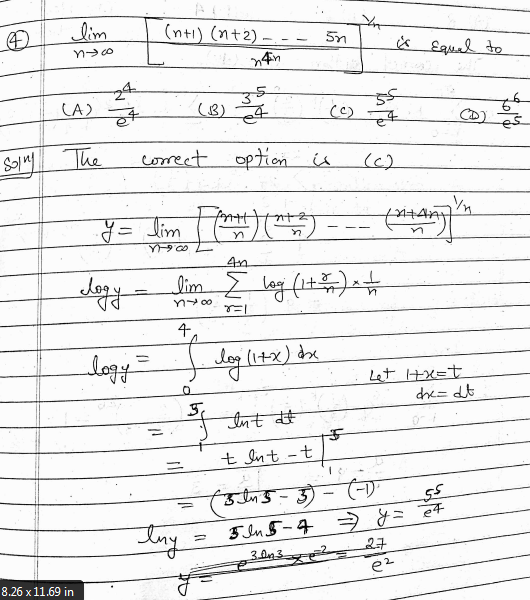 ④ lim n→∞ [ (n+1) (n+2) - - - 5n / n^4n ]^1/n is equal to
(A) 2^4/e^4 (B) 3^5/e^4 (C) 5^5/e^4 (D) 6^6/e^5
Solⁿ] The correct option is (C)
y = lim n→∞ [ ((n+1)/n) ((n+2)/n) - - - ((n+4n)/n) ]^1/n
log y = lim n→∞ 4n Σ r=1 log (1+r/n) × 1/n
log y = ∫ 0 4 log (1+x) dx
Let 1+x=t
dx = dt
= ∫ 1 5 ln t dt
= t ln t - t | 1 5
= (5 ln 5 - 5) - (-1)
ln y = 5 ln 5 - 4 ⇒ y = 5^5/e^4
y = e^3 ln 3 × e^-2 = 27/e^2
8.26 x 11.69 in